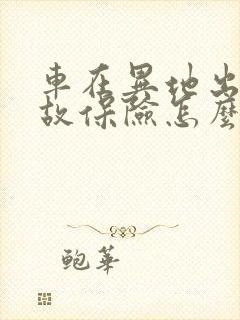 車在異地出
故保險怎麼
鮑華